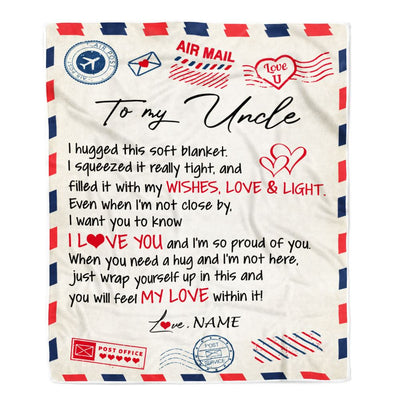 AIR MAIL
Love
U
To my Uncle
I hugged this soft blanket.
I squeezed it really tight, and
filled it with my WISHES, LOVE & LIGHT.
Even when I'm not close by,
I want you to know
I L❤VE YOU and I'm so proud of you.
When you need a hug and I'm not here,
just wrap yourself up in this and
you will feel MY LOVE within it!
Love, NAME
POST OFFICE
POST
SERVICE